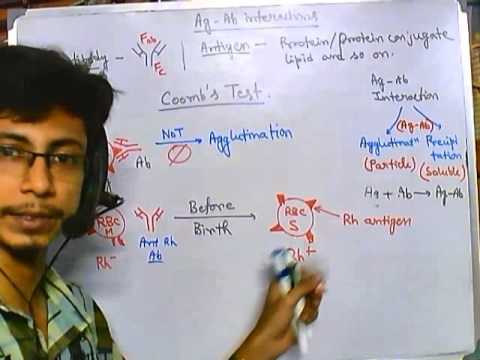 Ag-Ab interactions
Fab
Fc
Antigen - Protein/protein conjugate
lipid and so on.
Coomb's Test.
Ag-Ab
Interaction
(Ag-Ab)
Agglutinatn Precipi
tation
(Particle) (Soluble)
Ag + Ab → Ag-Ab
H
Ab
NOT
Agglutination
RBC
M
Rh-
Anti Rh
Ab
Before
Birth
RBC
S
Rh+
Rh antigen